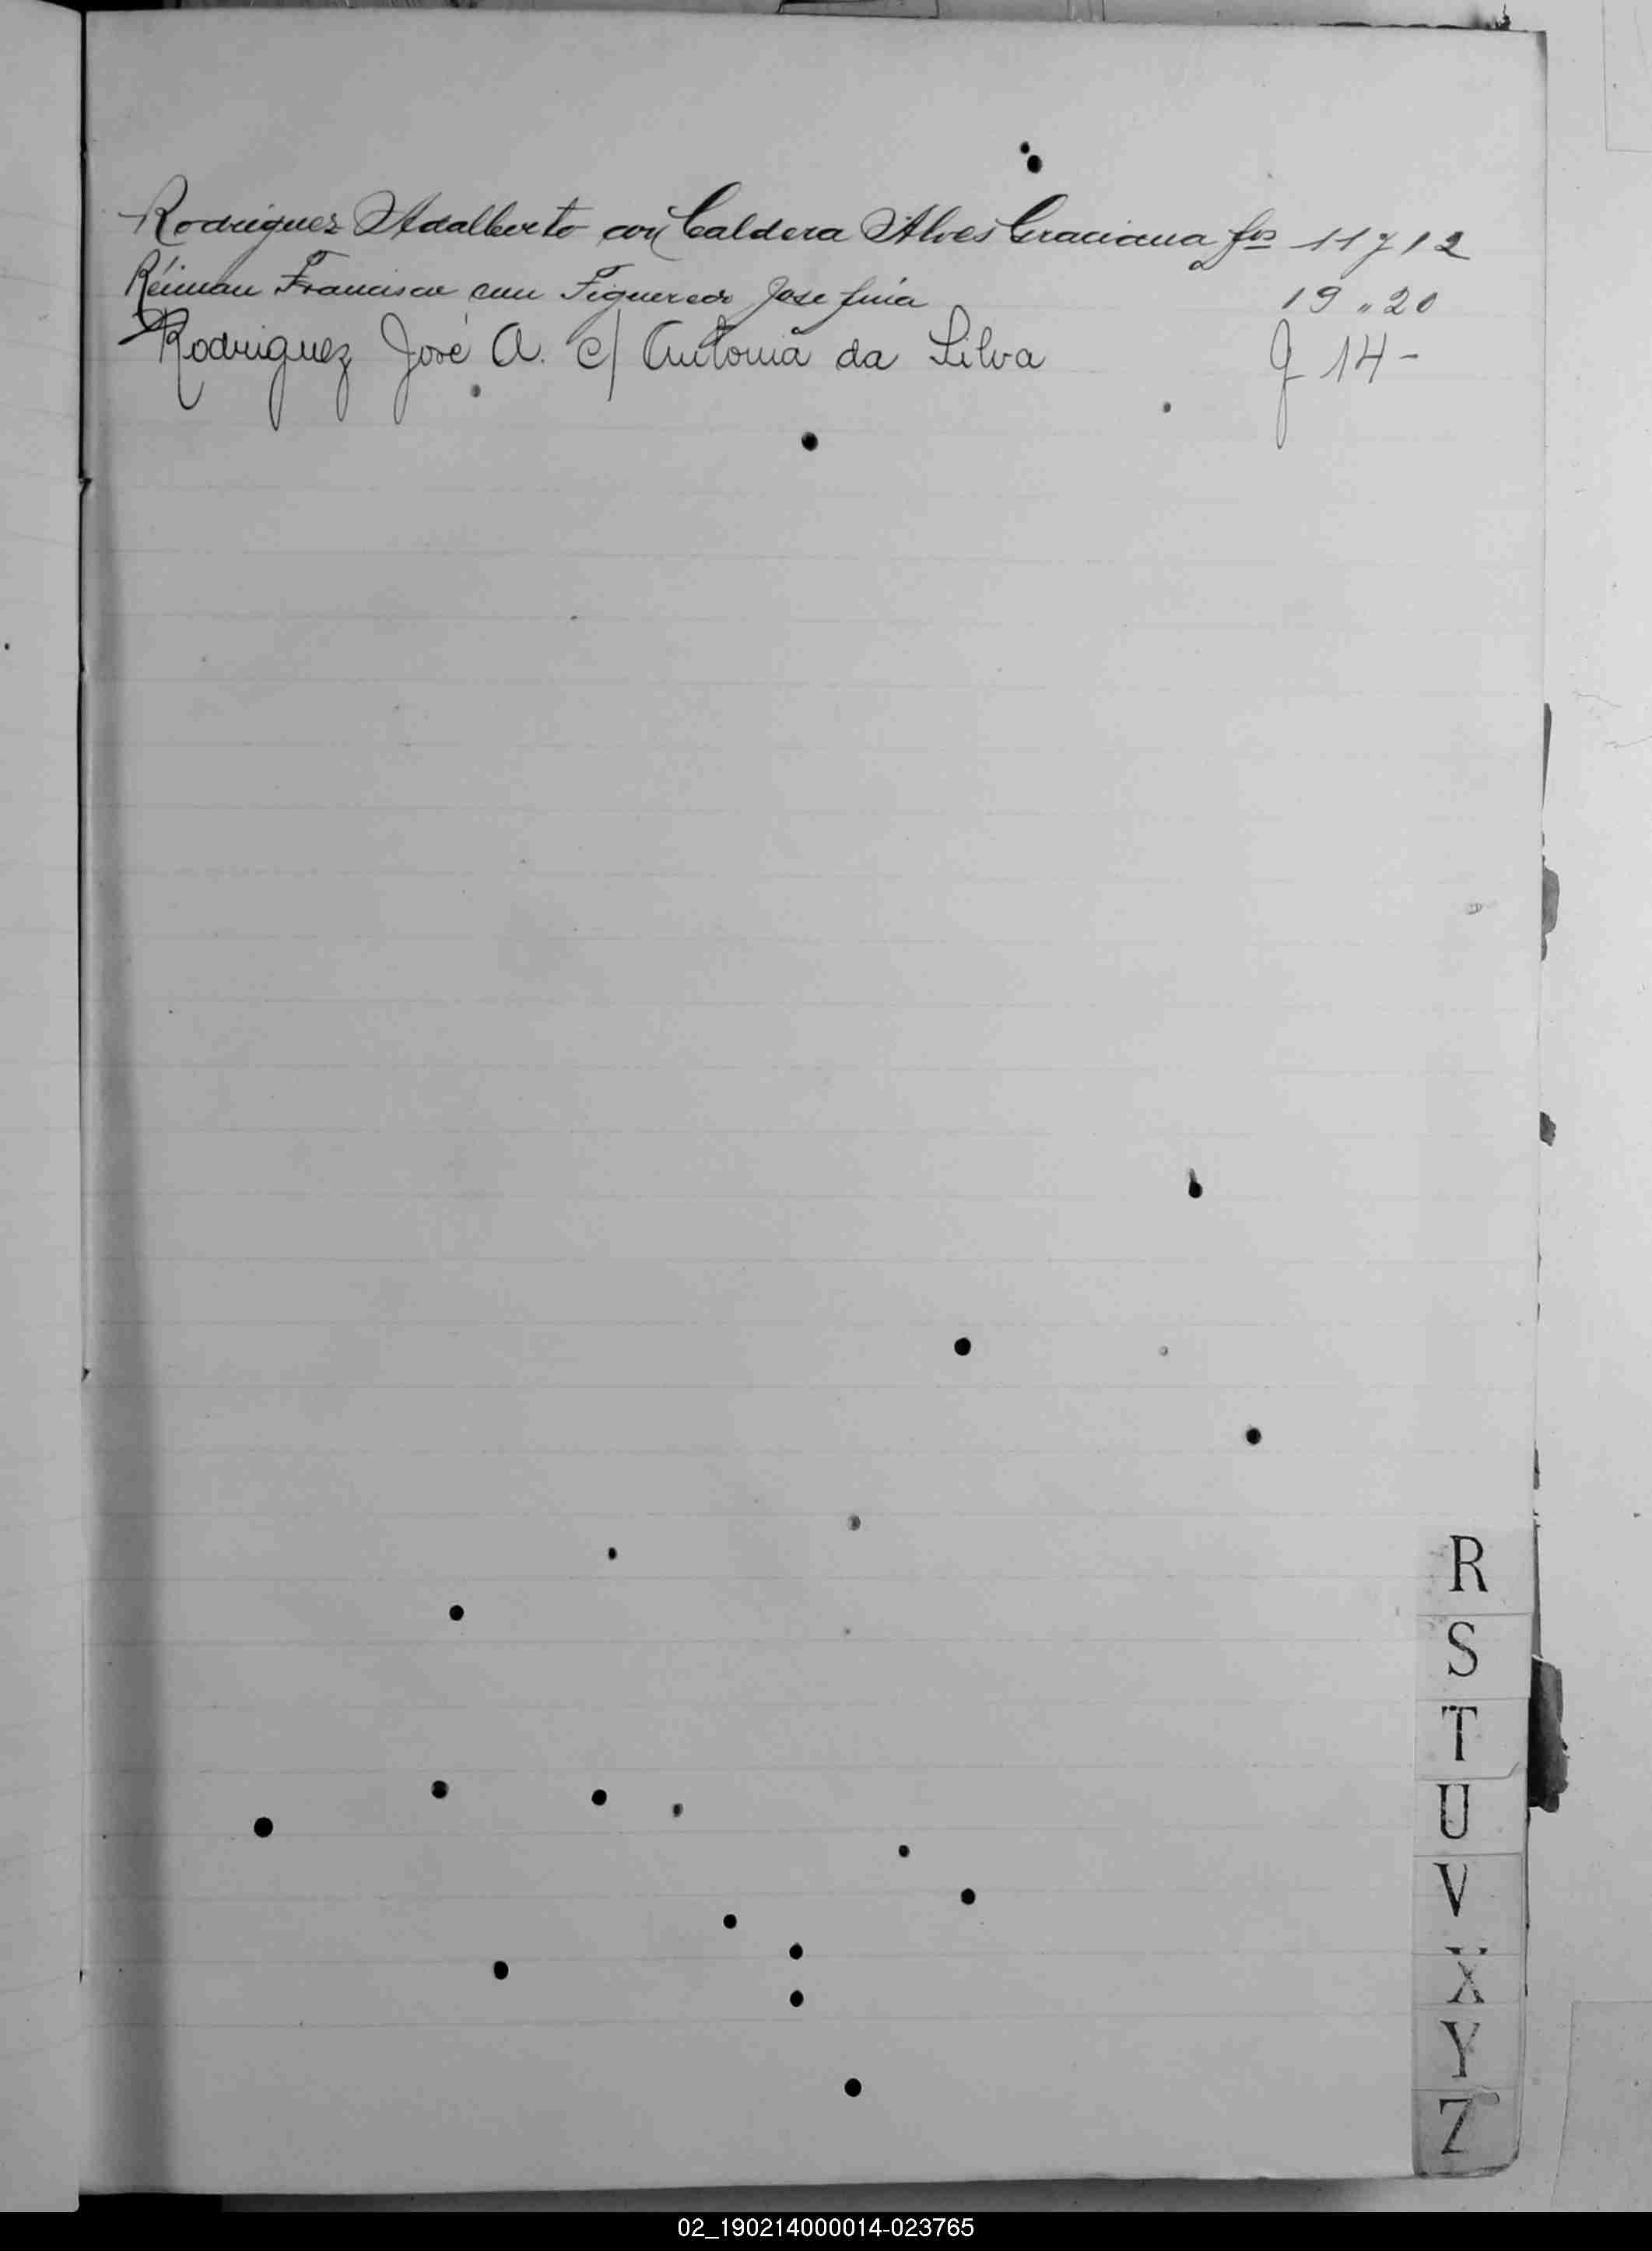 Rodriguez Adalberto con Caldera Alves Graciana fos 11 y 12
Réiman Francisco con Figueredo Josefina 19 " 20
Rodriguez José A. c/ Antonia da Silva f 14 -
R
S
T
U
V
X
Y
Z
02_190214000014-023765